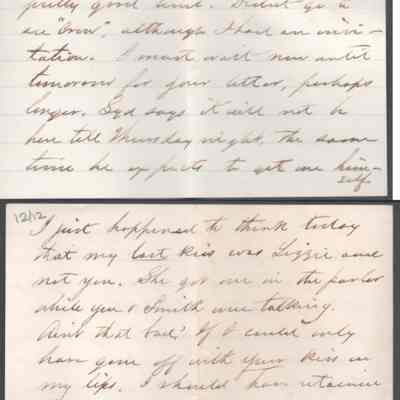 pretty good time. Didn't go to
see "Crow", although I had an invi-
tation. I must wait now until
tomorrow for your letter, perhaps
longer. Syd says it will not be
here till Thursday night, the same
time he expects to get one him-
self.
12/12
I just happened to think today
that my last kiss was Lizzie's and
not you. She got one in the parlor
while you & Smith were talking.
Ain't that bad? If I could only
have gone off with your kiss on
my lips, I should have retained